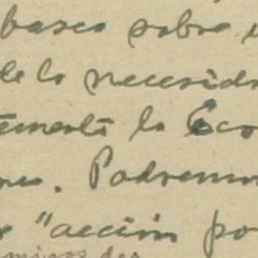 bases sobre
de la necesid
temente la Eco
nes. Podremos
"acción po